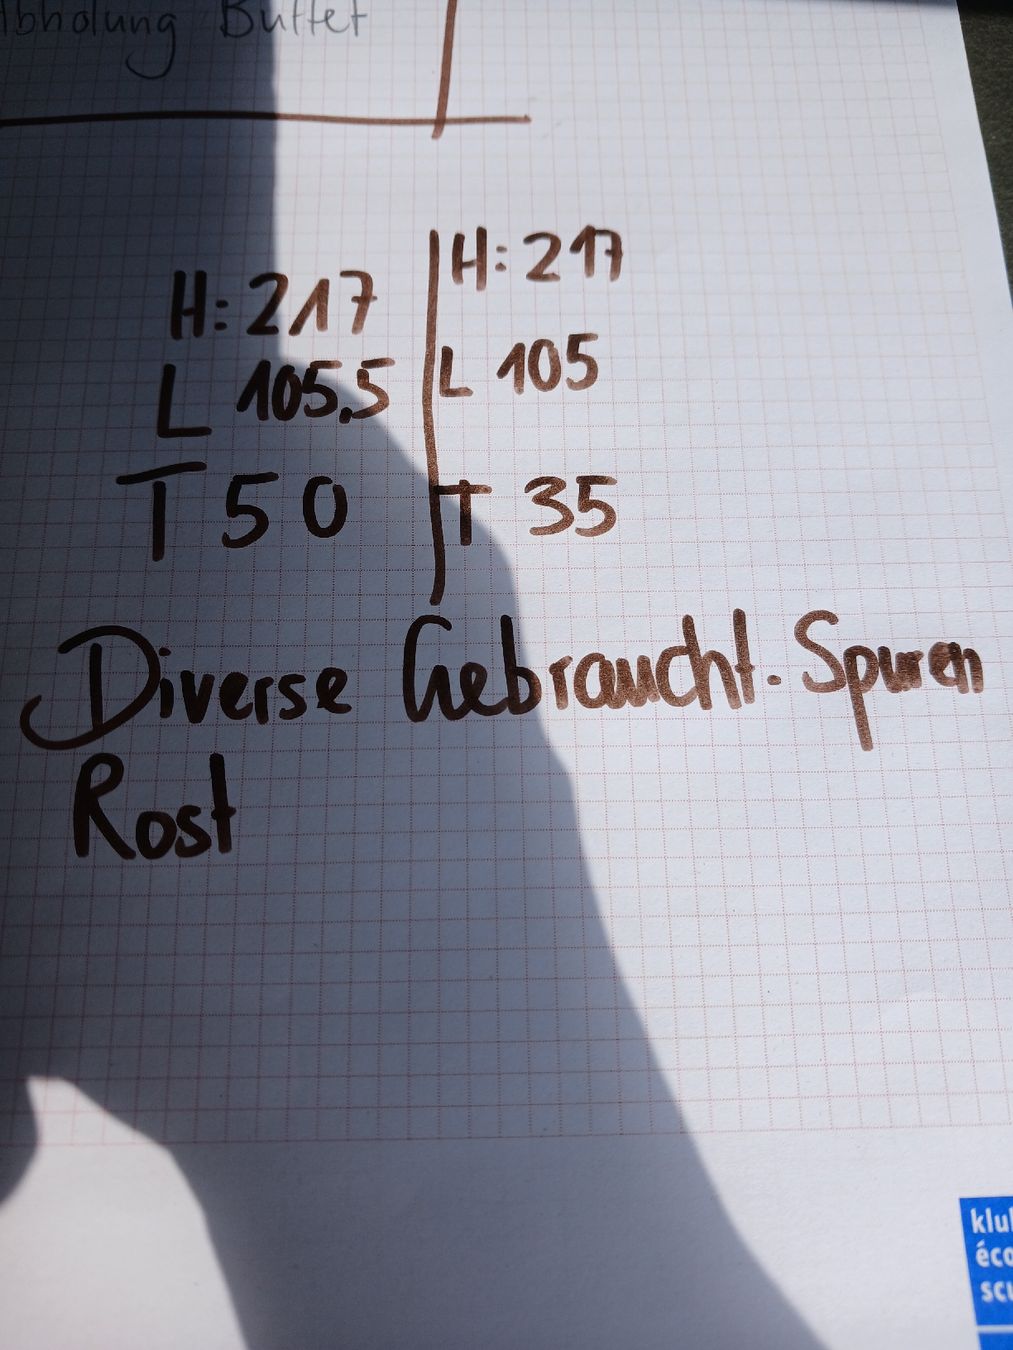 Abholung Buffet
H: 217
L 105,5
T 50
H: 217
L 105
T 35
Diverse Gebraucht. Spuren
Rost
klu
éco
scu